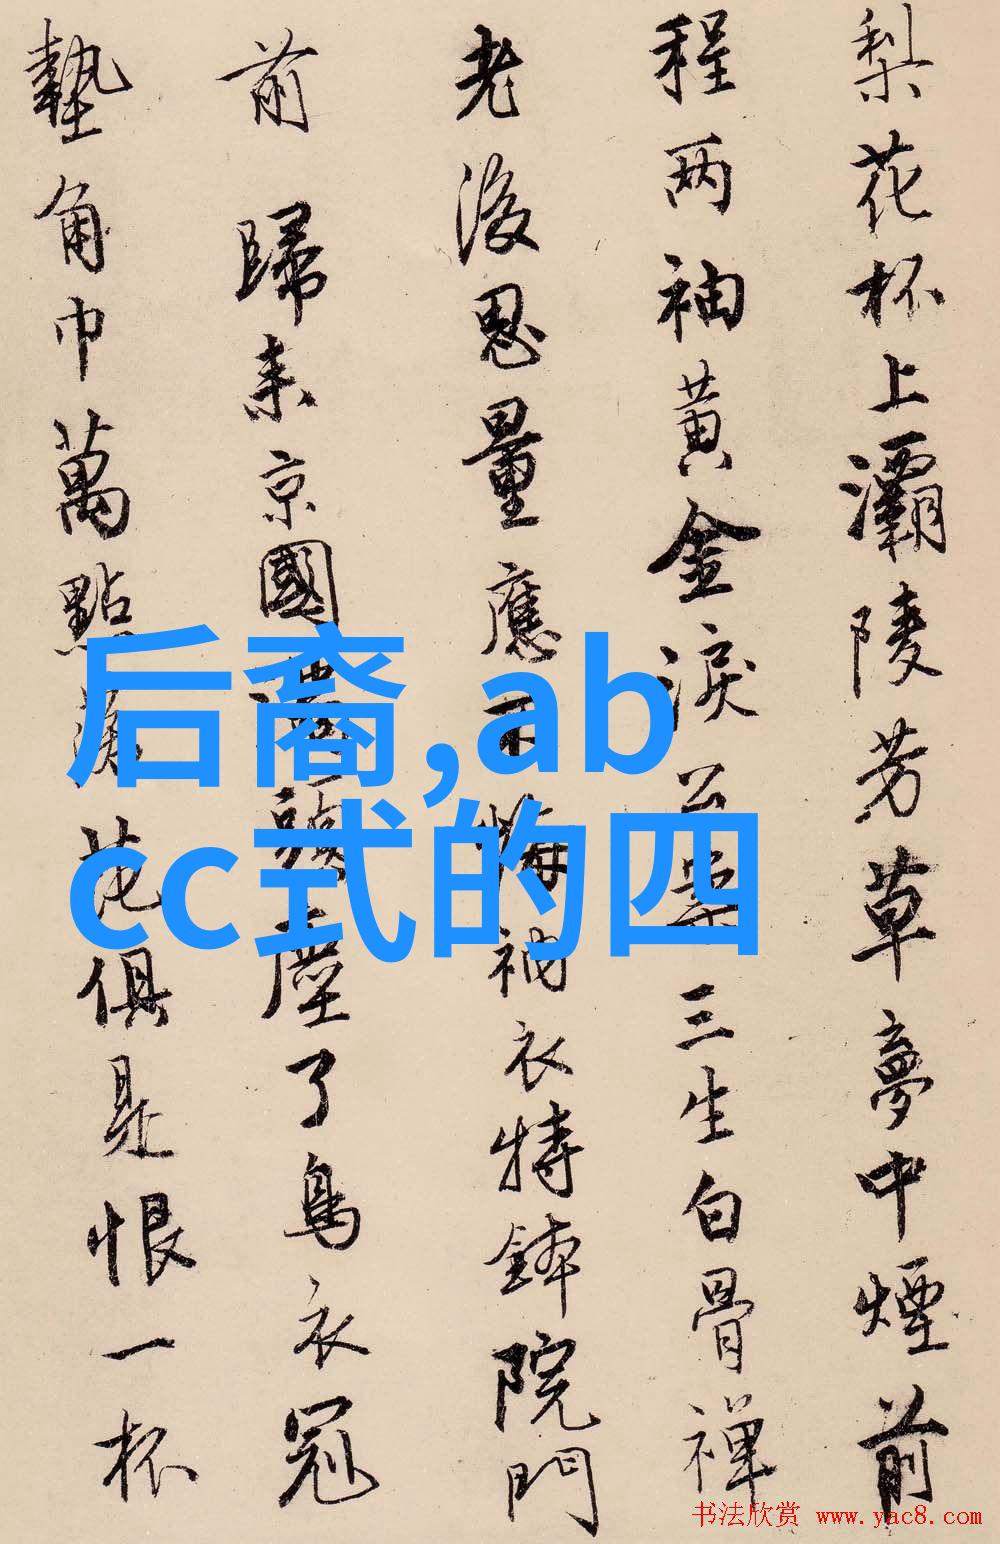 梨花杯上灞陵芳草夢中煙前
程两袖黄金淚公案三生白骨禪
老後思量應不悔衲衣持鉢院門
前 歸来京國頭塵了烏衣冠
墊角巾萬點落花俱是恨一杯
后裔,ab
cc式的四
书法欣赏 www.yac8.com